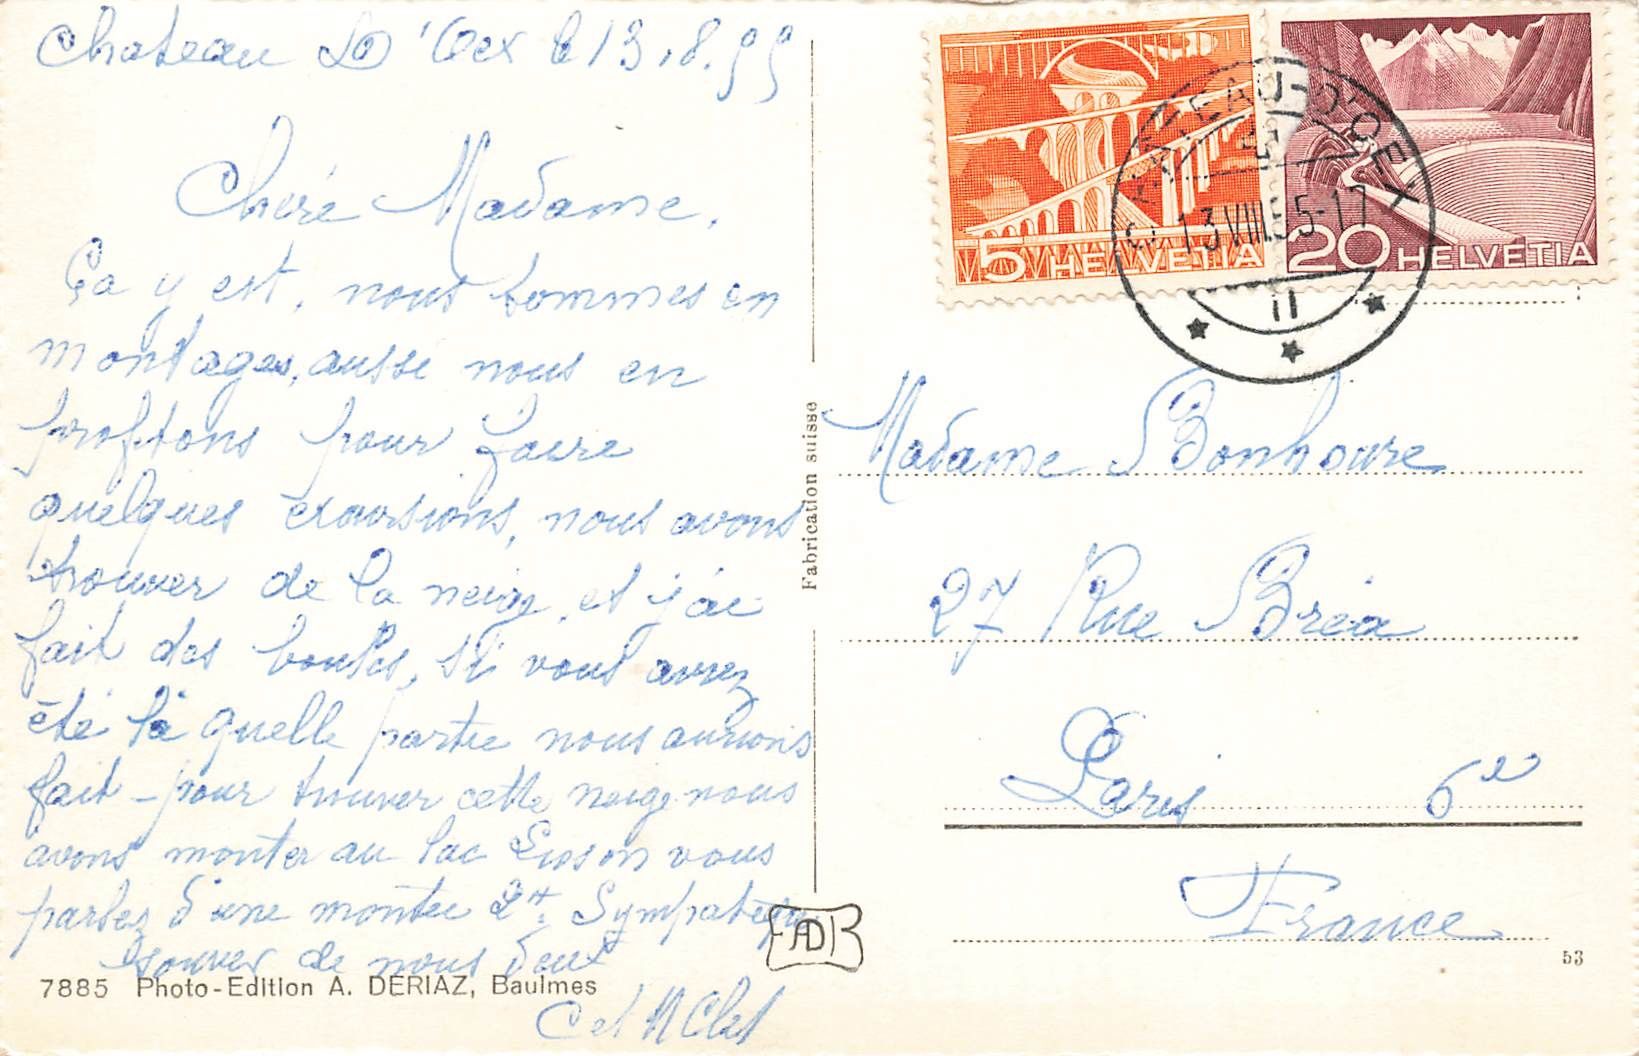 Chateau D'Oex le 13.8.55
Cheré Madame,
Ça y est, nous sommes en
montages, ausse nous en
profitons pour faire
quelques éxcursions, nous avons
trouver de la neige, et j'ai
fait des boules, si vous aviez
été là quelle partie nous aurions
fait - pour trouver cette neige nous
avons monter au lac Lioson vous
parlez d'une montée Et Sympatique
souver de nous deux
C et N Clet
7885 Photo-Edition A. DERIAZ, Baulmes
Fabrication suisse
ADB
5 HELVETIA
20 HELVETIA
CHATEAU-D'OEX
13.VIII.55-17
Madame Bonhoure
27 Rue Bréa
Paris 6e
France
53